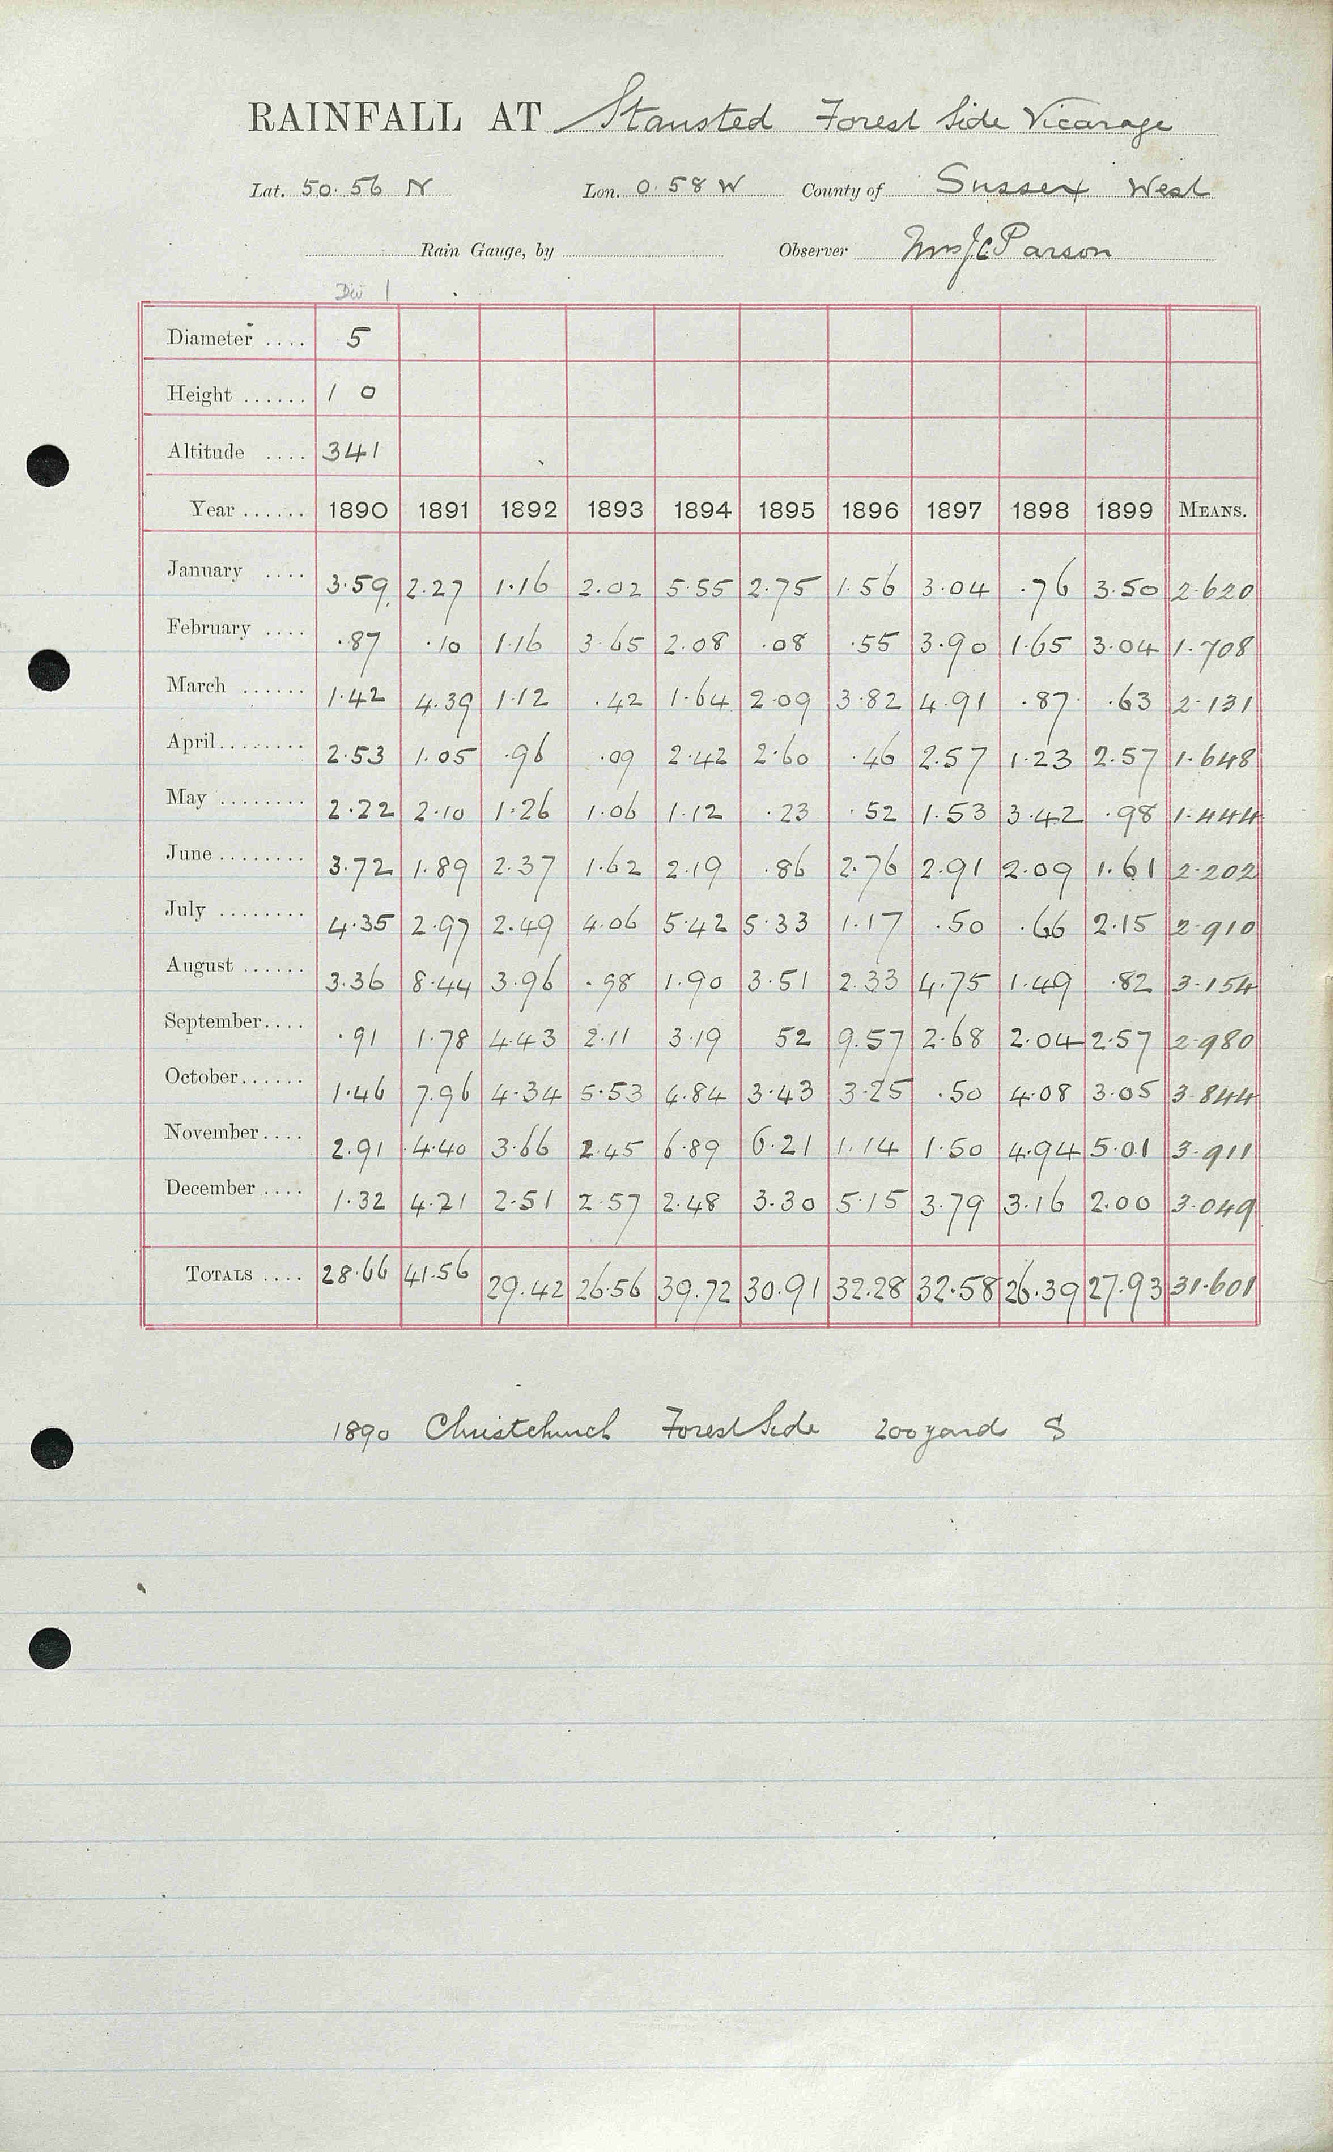 RAINFALL AT Stansted Forest Side Vicarage
Lat. 50.56 N Lon. 0.58 W County of Sussex West
Rain Gauge, by Observer Mrs J.C. Parson
Diameter .... 5
Height ...... 1 0
Altitude .... 341
Year ...... 1890 1891 1892 1893 1894 1895 1896 1897 1898 1899 MEANS.
January .... 3.59 2.27 1.16 2.02 5.55 2.75 1.56 3.04 .76 3.50 2.620
February .... .87 .10 1.16 3.65 2.08 .08 .55 3.90 1.65 3.04 1.708
March ...... 1.42 4.39 1.12 .42 1.64 2.09 3.82 4.91 .87 .63 2.131
April........ 2.53 1.05 .96 .09 2.42 2.60 .46 2.57 1.23 2.57 1.648
May ........ 2.22 2.10 1.26 1.06 1.12 .23 .52 1.53 3.42 .98 1.444
June ........ 3.72 1.89 2.37 1.62 2.19 .86 2.76 2.91 2.09 1.61 2.202
July ........ 4.35 2.97 2.49 4.06 5.42 5.33 1.17 .50 .66 2.15 2.910
August ...... 3.36 8.44 3.96 .98 1.90 3.51 2.33 4.75 1.49 .82 3.154
September.... .91 1.78 4.43 2.11 3.19 52 9.57 2.68 2.04 2.57 2.980
October...... 1.46 7.96 4.34 5.53 4.84 3.43 3.25 .50 4.08 3.05 3.844
November.... 2.91 4.40 3.66 2.45 6.89 6.21 1.14 1.50 4.94 5.01 3.911
December .... 1.32 4.21 2.51 2.57 2.48 3.30 5.15 3.79 3.16 2.00 3.049
TOTALS .... 28.66 41.56 29.42 26.56 39.72 30.91 32.28 32.58 26.39 27.93 31.601
1890 Christchurch Forest Side 200 yard S